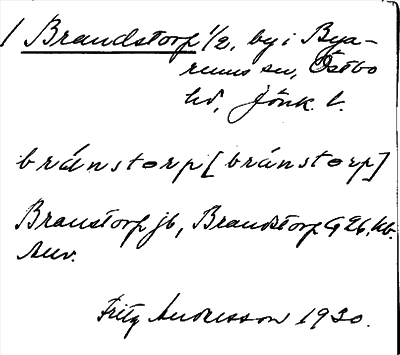 / Brandstorp 1/2, by i Bya-
rums sn, Östbo
hd, Jönk. l.
bránstorp [bránstorp]
Branstorp jb, Brandstorp G 26, kb.
Anv.
Fritz Andersson 1930.